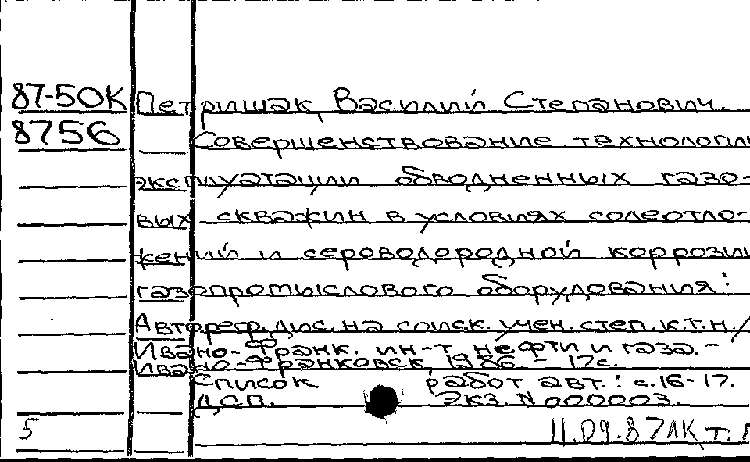 87-50К Петришак, Василий Степанович.
8756 Совершенствование технологии
эксплуатации обводненных газо-
вых скважин в условиях солеотло-
жений и сероводородной коррозии
газопромыслового оборудования:
Автореф. дис. на соиск. учен. степ. к.т.н/
Ивано-Франк. ин-т нефти и газа. -
Ивано-Франковск, 1986. - 17с.
Список работ авт.: с.16-17.
ДСП. Экз. N 000003.
5 11.09.87 ЛК т.